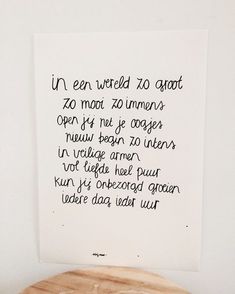 in een wereld zo groot
zo mooi zo immens
open jij net je oogjes
nieuw begin zo intens
in veilige armen
vol liefde heel puur
kun jij onbezorgd groeien
iedere dag ieder uur